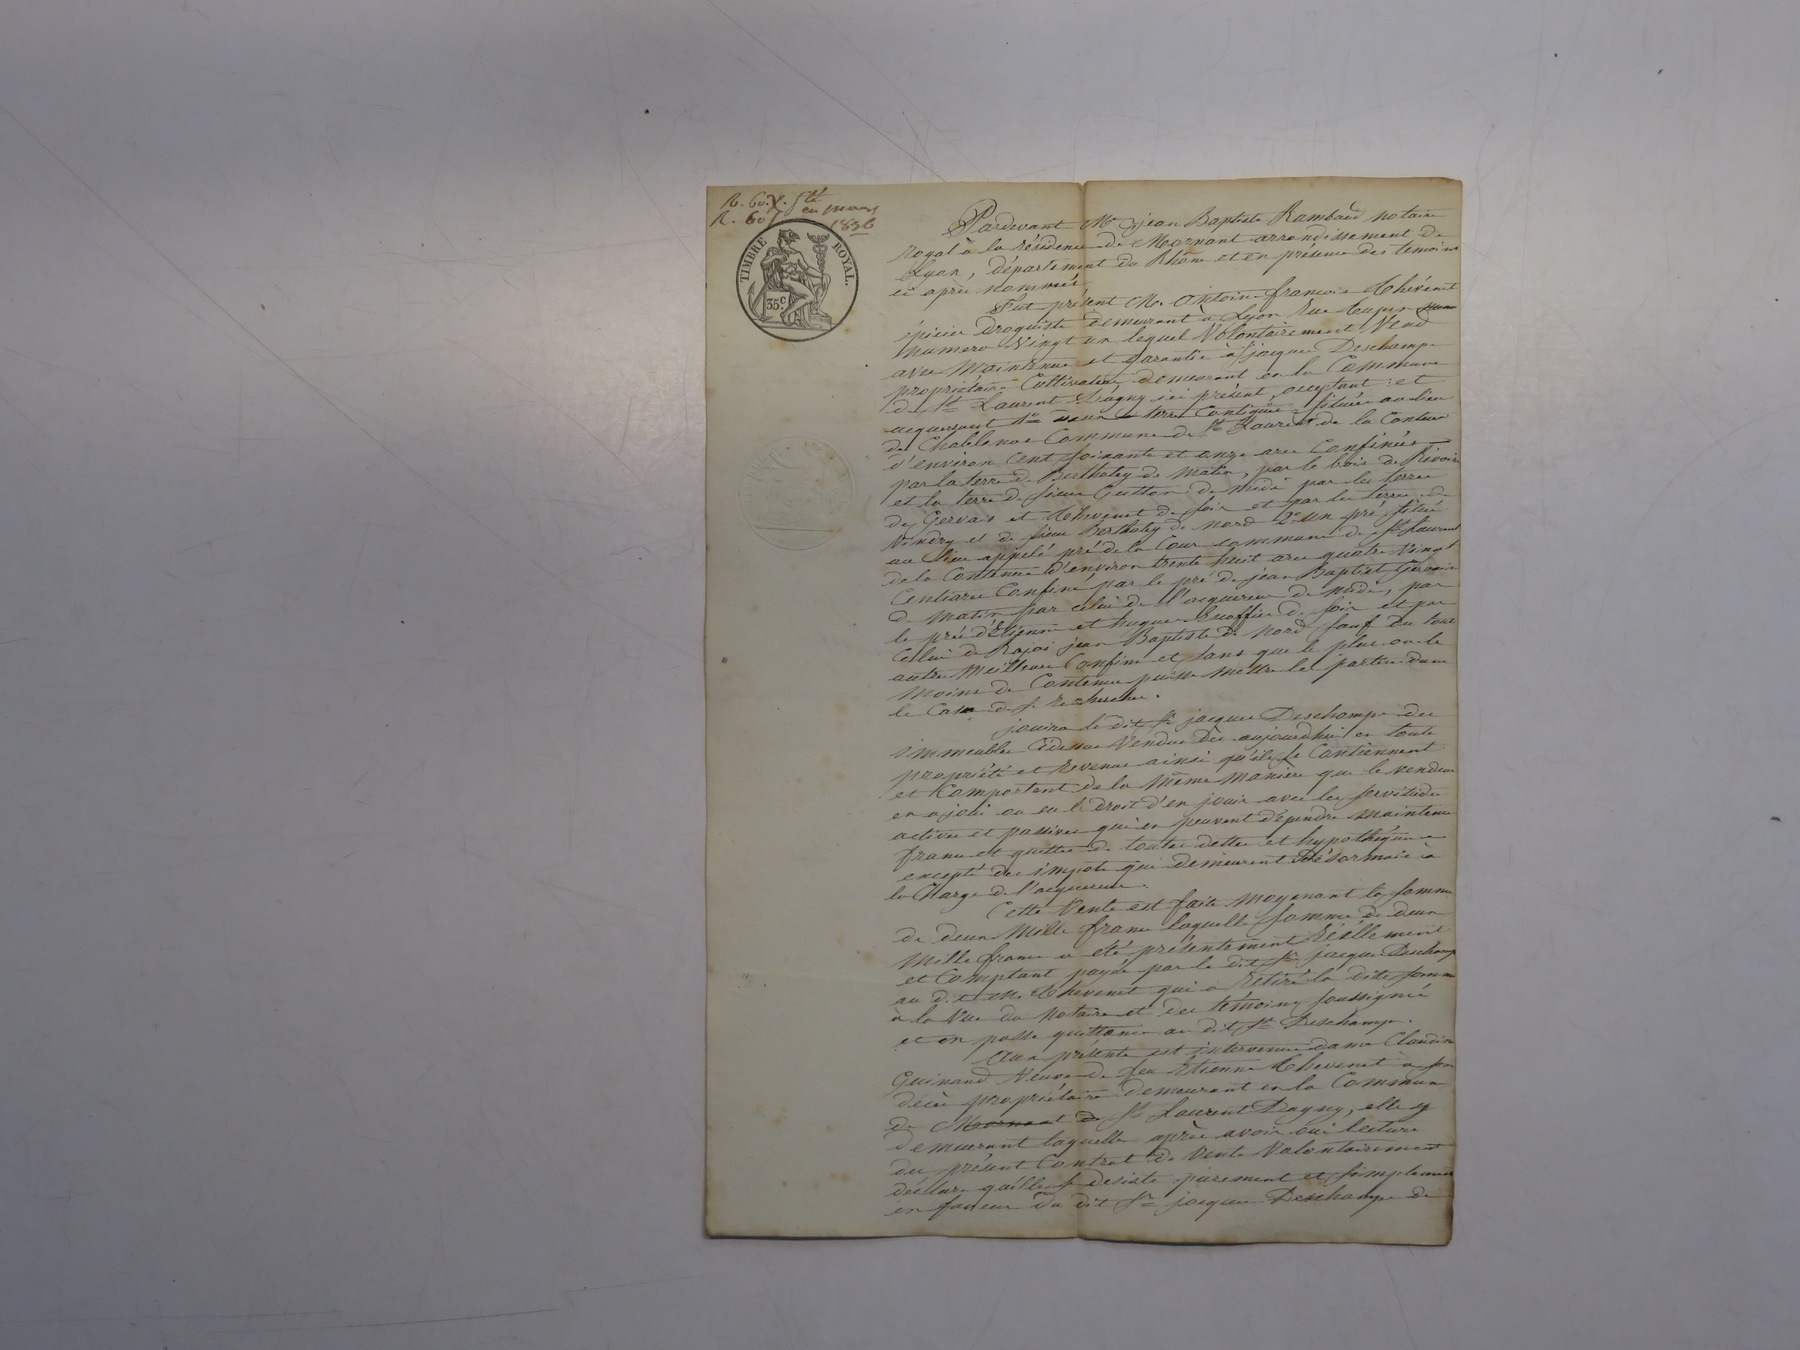 R. 60. V. 5te
R. 60 f en mars
1836
TIMBRE ROYAL.
35.c
Pardevant Me jean Baptiste Rambaud notaire
Royal à la résidence de Mornant arrondissement de
Lyon, département du Rhône et en présence des temoins
ci après nommés
Fut présent M. Antoine françois Thévenet
épicier Droguiste demeurant à Lyon Rue Tupin
numero vingt un lequel Volontairement Vend
avec Maintenue et garantie à jacques Deschamps
propriétaire Cultivateur demeurant en la Commune
de St Laurent Dagny ici présent, acceptant et
acquerant 1o une terre Contigue située au lieu
de Chablenas Commune de St Laurent de la Contenue
d'environ Cent soixante et onze ares Confinée
par la terre de Bertholey de matin, par le bois de Rivoire
et la terre de sieur Guitton de midi par les terres
de Gervais et Thevenet de soir et par les terres de
Vindry et de sieur Bertholey de nord 2o un pré situé
au lieu appelé pré de la Cour commune de St Laurent
de la Contenue d'environ trente huit ares quatre vingt
Centiares Confiné par le pré de jean Baptist Gervais
de Matin par celui de l'acquereur de midi, par
le pré d'Etienne et hugues de soir et par
Celui de jean Baptiste de nord sauf du tout
autres Meilleurs Confins et sans que le plus ou le
Moins de Contenue puisse mettre les parties dans
le Cas de se Rechercher.
jouira le dit Sr jacques Deschamps des
immeubles Cidessus Vendus Dès aujourdhui en toute
propriété et Revenus ainsi qu'ils se Contiennent
et Komportent de la même manière que le vendeur
en a joui ou eu le Droit d'en jouir avec les servitudes
actives et passives qui en peuvent dépendre Maintenus
francs et quittes de toutes dettes et hypothèques
excepté des impots qui demeurent Désormais à
la Charge de l'acquereur.
Cette Vente est faite Moyenant la somme
de deux Mille francs laquelle somme de deux
Mille francs a été présentement Réellement
et Comptant payée par le dit Sr jacques Deschamps
au dit M. Thevenet qui a Retiré la dite somme
à la Vue du Notaire et des témoins soussignés
et en passe quittance au dit Sr Deschamps.
Aux présentes est intervenue dame Claudine
Guinand Veuve de feu Etienne Thevenet à son
décès propriétaire demeurant en la Commune
de Mornant de St Laurent Dagny, elle y
demeurant laquelle après avoir oui lecture
du présent Contrat de Vente Volontairement
déclare qu'elle se desiste purement et simplement
en faveur du dit Sr jacques Deschamps de